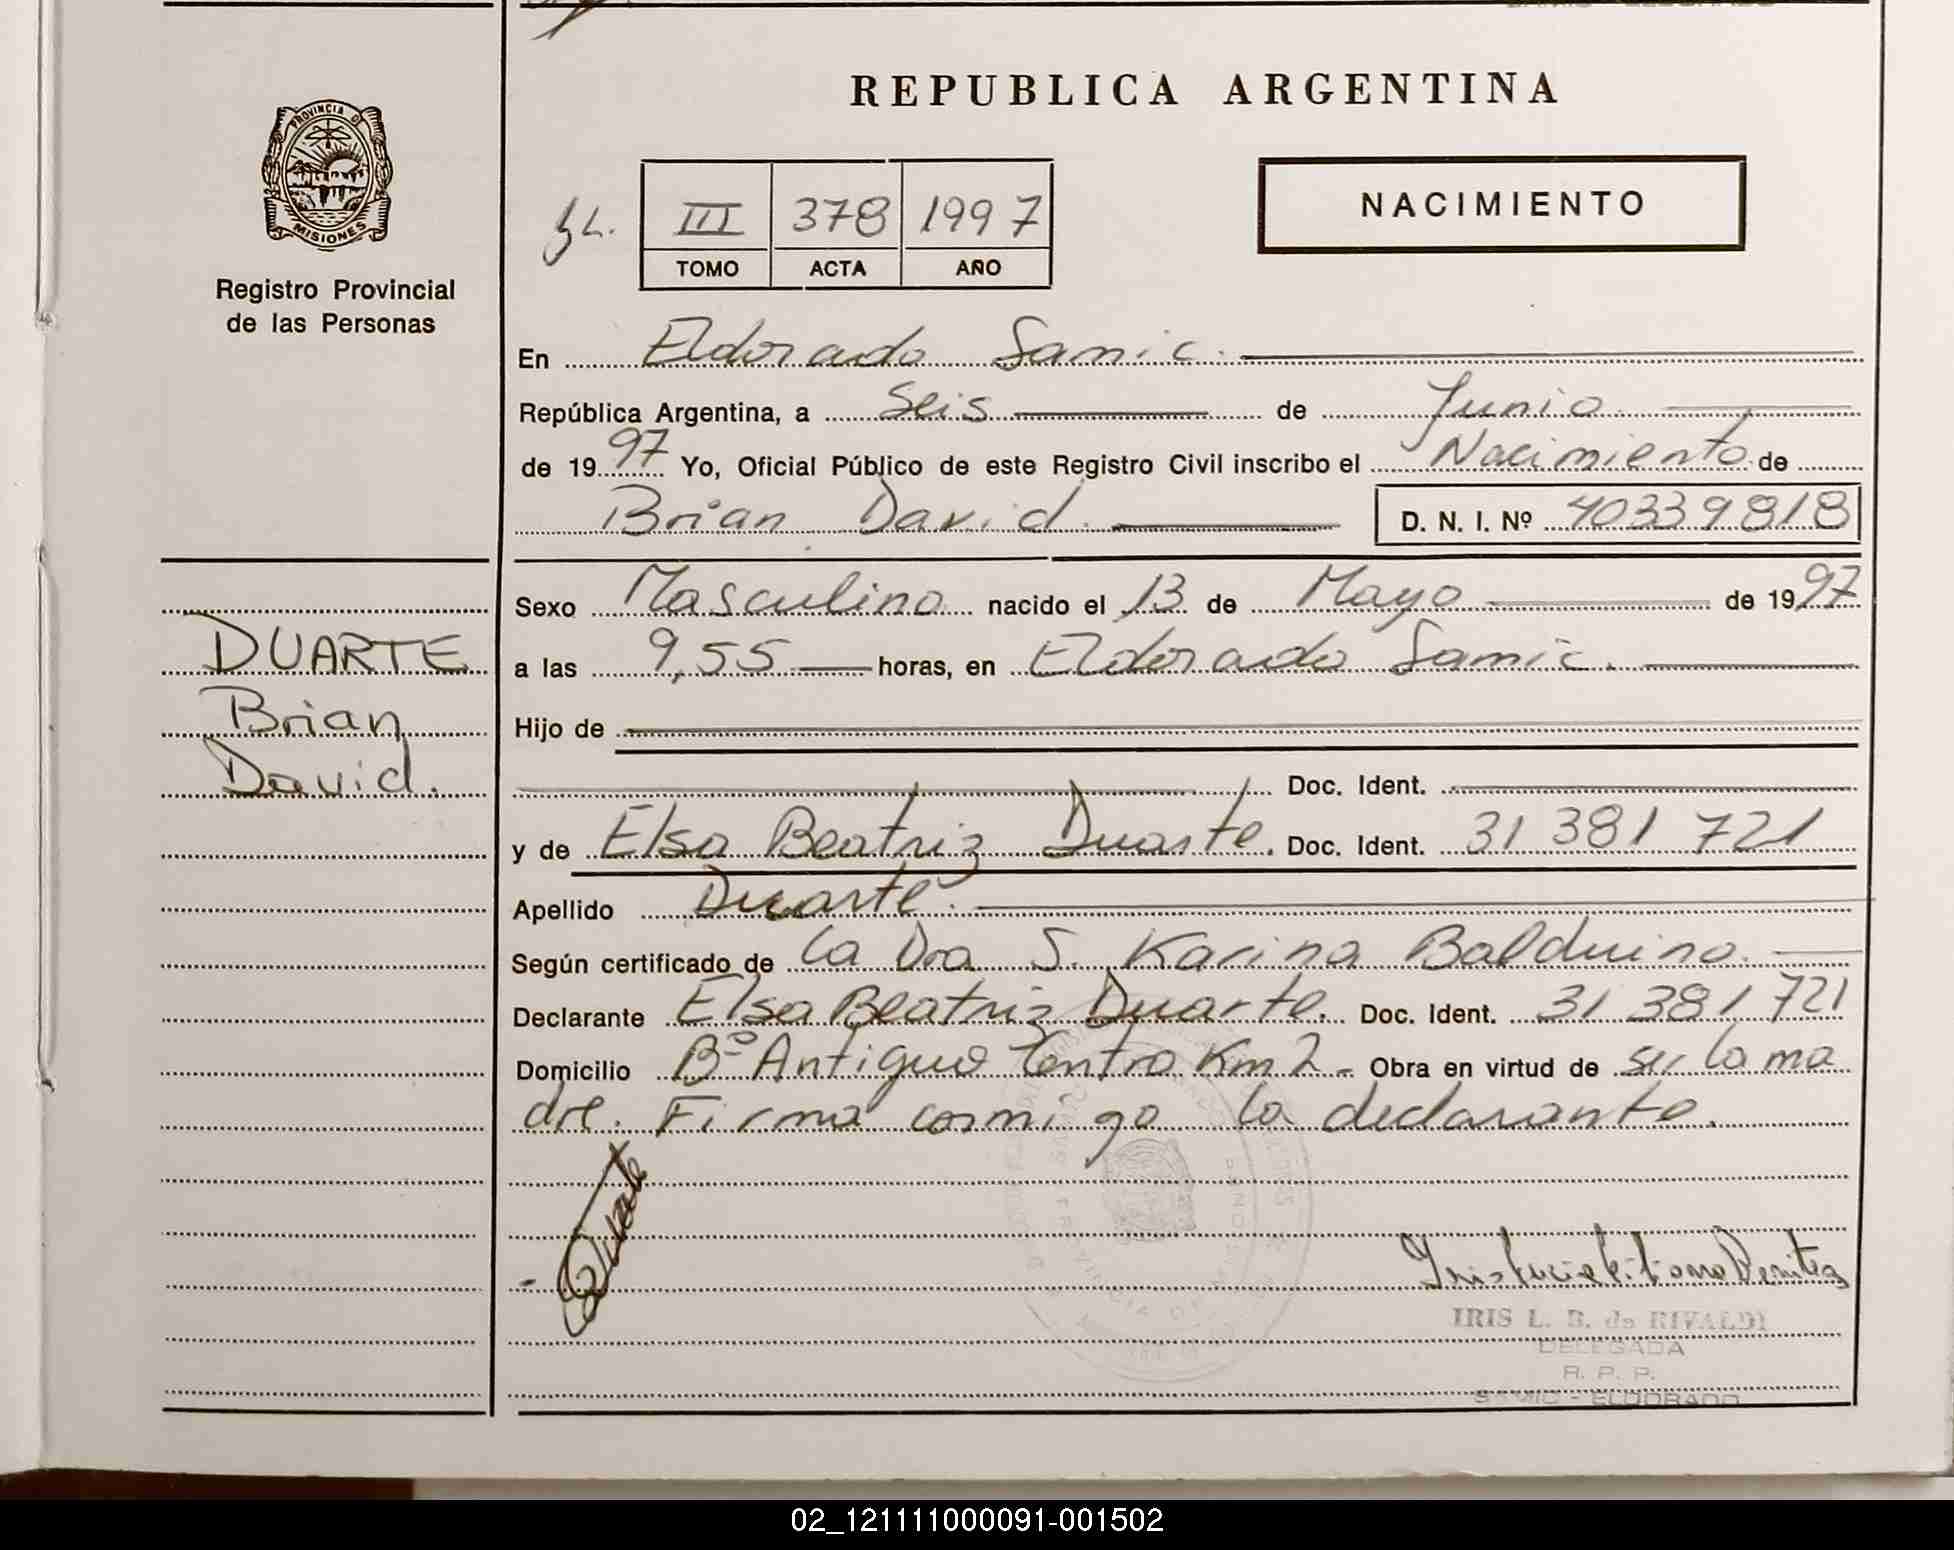 REPUBLICA ARGENTINA
PROVINCIA DE
MISIONES
Registro Provincial
de las Personas
III 378 1997
TOMO ACTA AÑO
NACIMIENTO
En Eldorado Samic.
República Argentina, a Seis de Junio
de 1997 Yo, Oficial Público de este Registro Civil inscribo el Nacimiento de
Brian David. D. N. I. Nº 40339818
Sexo Masculino nacido el 13 de Mayo de 1997
DUARTE
Brian
David.
a las 9,55 horas, en Eldorado Samic.
Hijo de
Doc. Ident.
y de Elsa Beatriz Duarte. Doc. Ident. 31 381 721
Apellido Duarte.
Según certificado de la Dra S. Karina Balduino.
Declarante Elsa Beatriz Duarte. Doc. Ident. 31 381 721
Domicilio Bº Antiguo Centro Km 2 - Obra en virtud de ser la ma
dre. Firma conmigo la declarante.
Duarte
IRIS L. B. de RIVALDI
DELEGADA
R. P. P.
SAMIC - ELDORADO
02_121111000091-001502